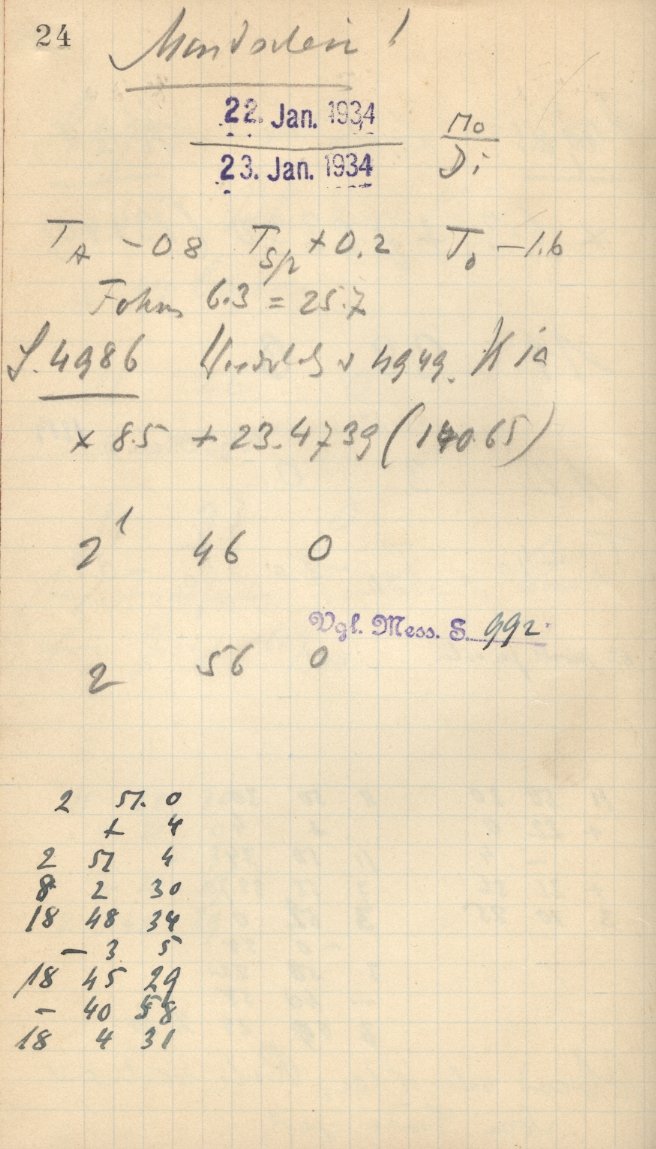 24
Mondschein!
22. Jan. 1934
23. Jan. 1934
Mo
Di
T_A -0.8 T_Sp +0.2 T_0 -1.6
Fokus 6.3 = 25.7
S. 4986 4949.
+ 23.4739 (14065)
2 46 0
Vgl. Mess. S. 992
2 56 0
2 51. 0
+ 4
2 51 4
8 2 30
18 48 34
- 3 5
18 45 29
- 40 58
18 4 31